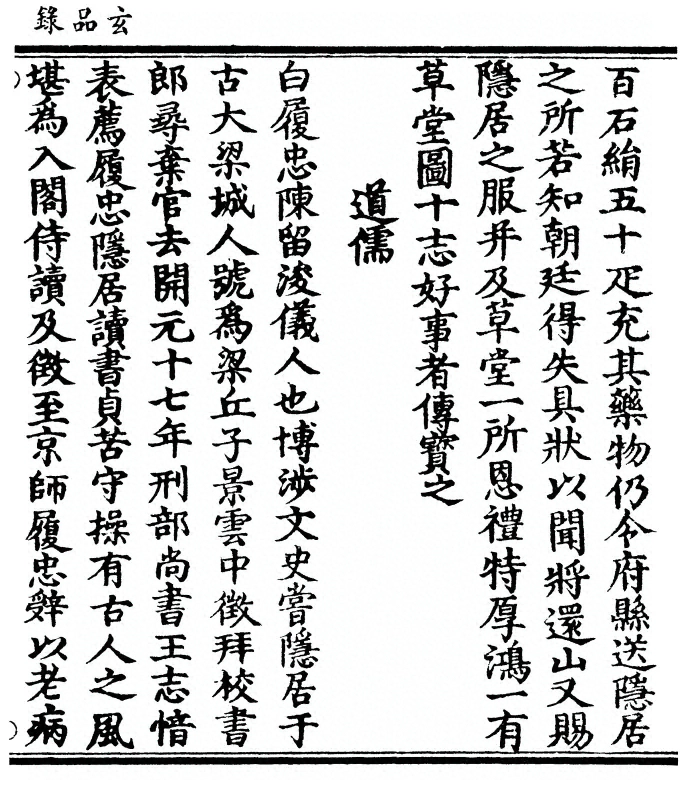 玄品錄
百石絹五十疋充其藥物仍令府縣送隱居
之所若知朝廷得失具狀以聞將還山又賜
隱居之服并及草堂一所恩禮特厚鴻一有
草堂圖十志好事者傳寶之
道儒
白履忠陳留浚儀人也博涉文史嘗隱居于
古大梁城人號為梁丘子景雲中徵拜校書
郎尋棄官去開元十七年刑部尚書王志愔
表薦履忠隱居讀書貞苦守操有古人之風
堪為入閣侍讀及徵至京師履忠辭以老病